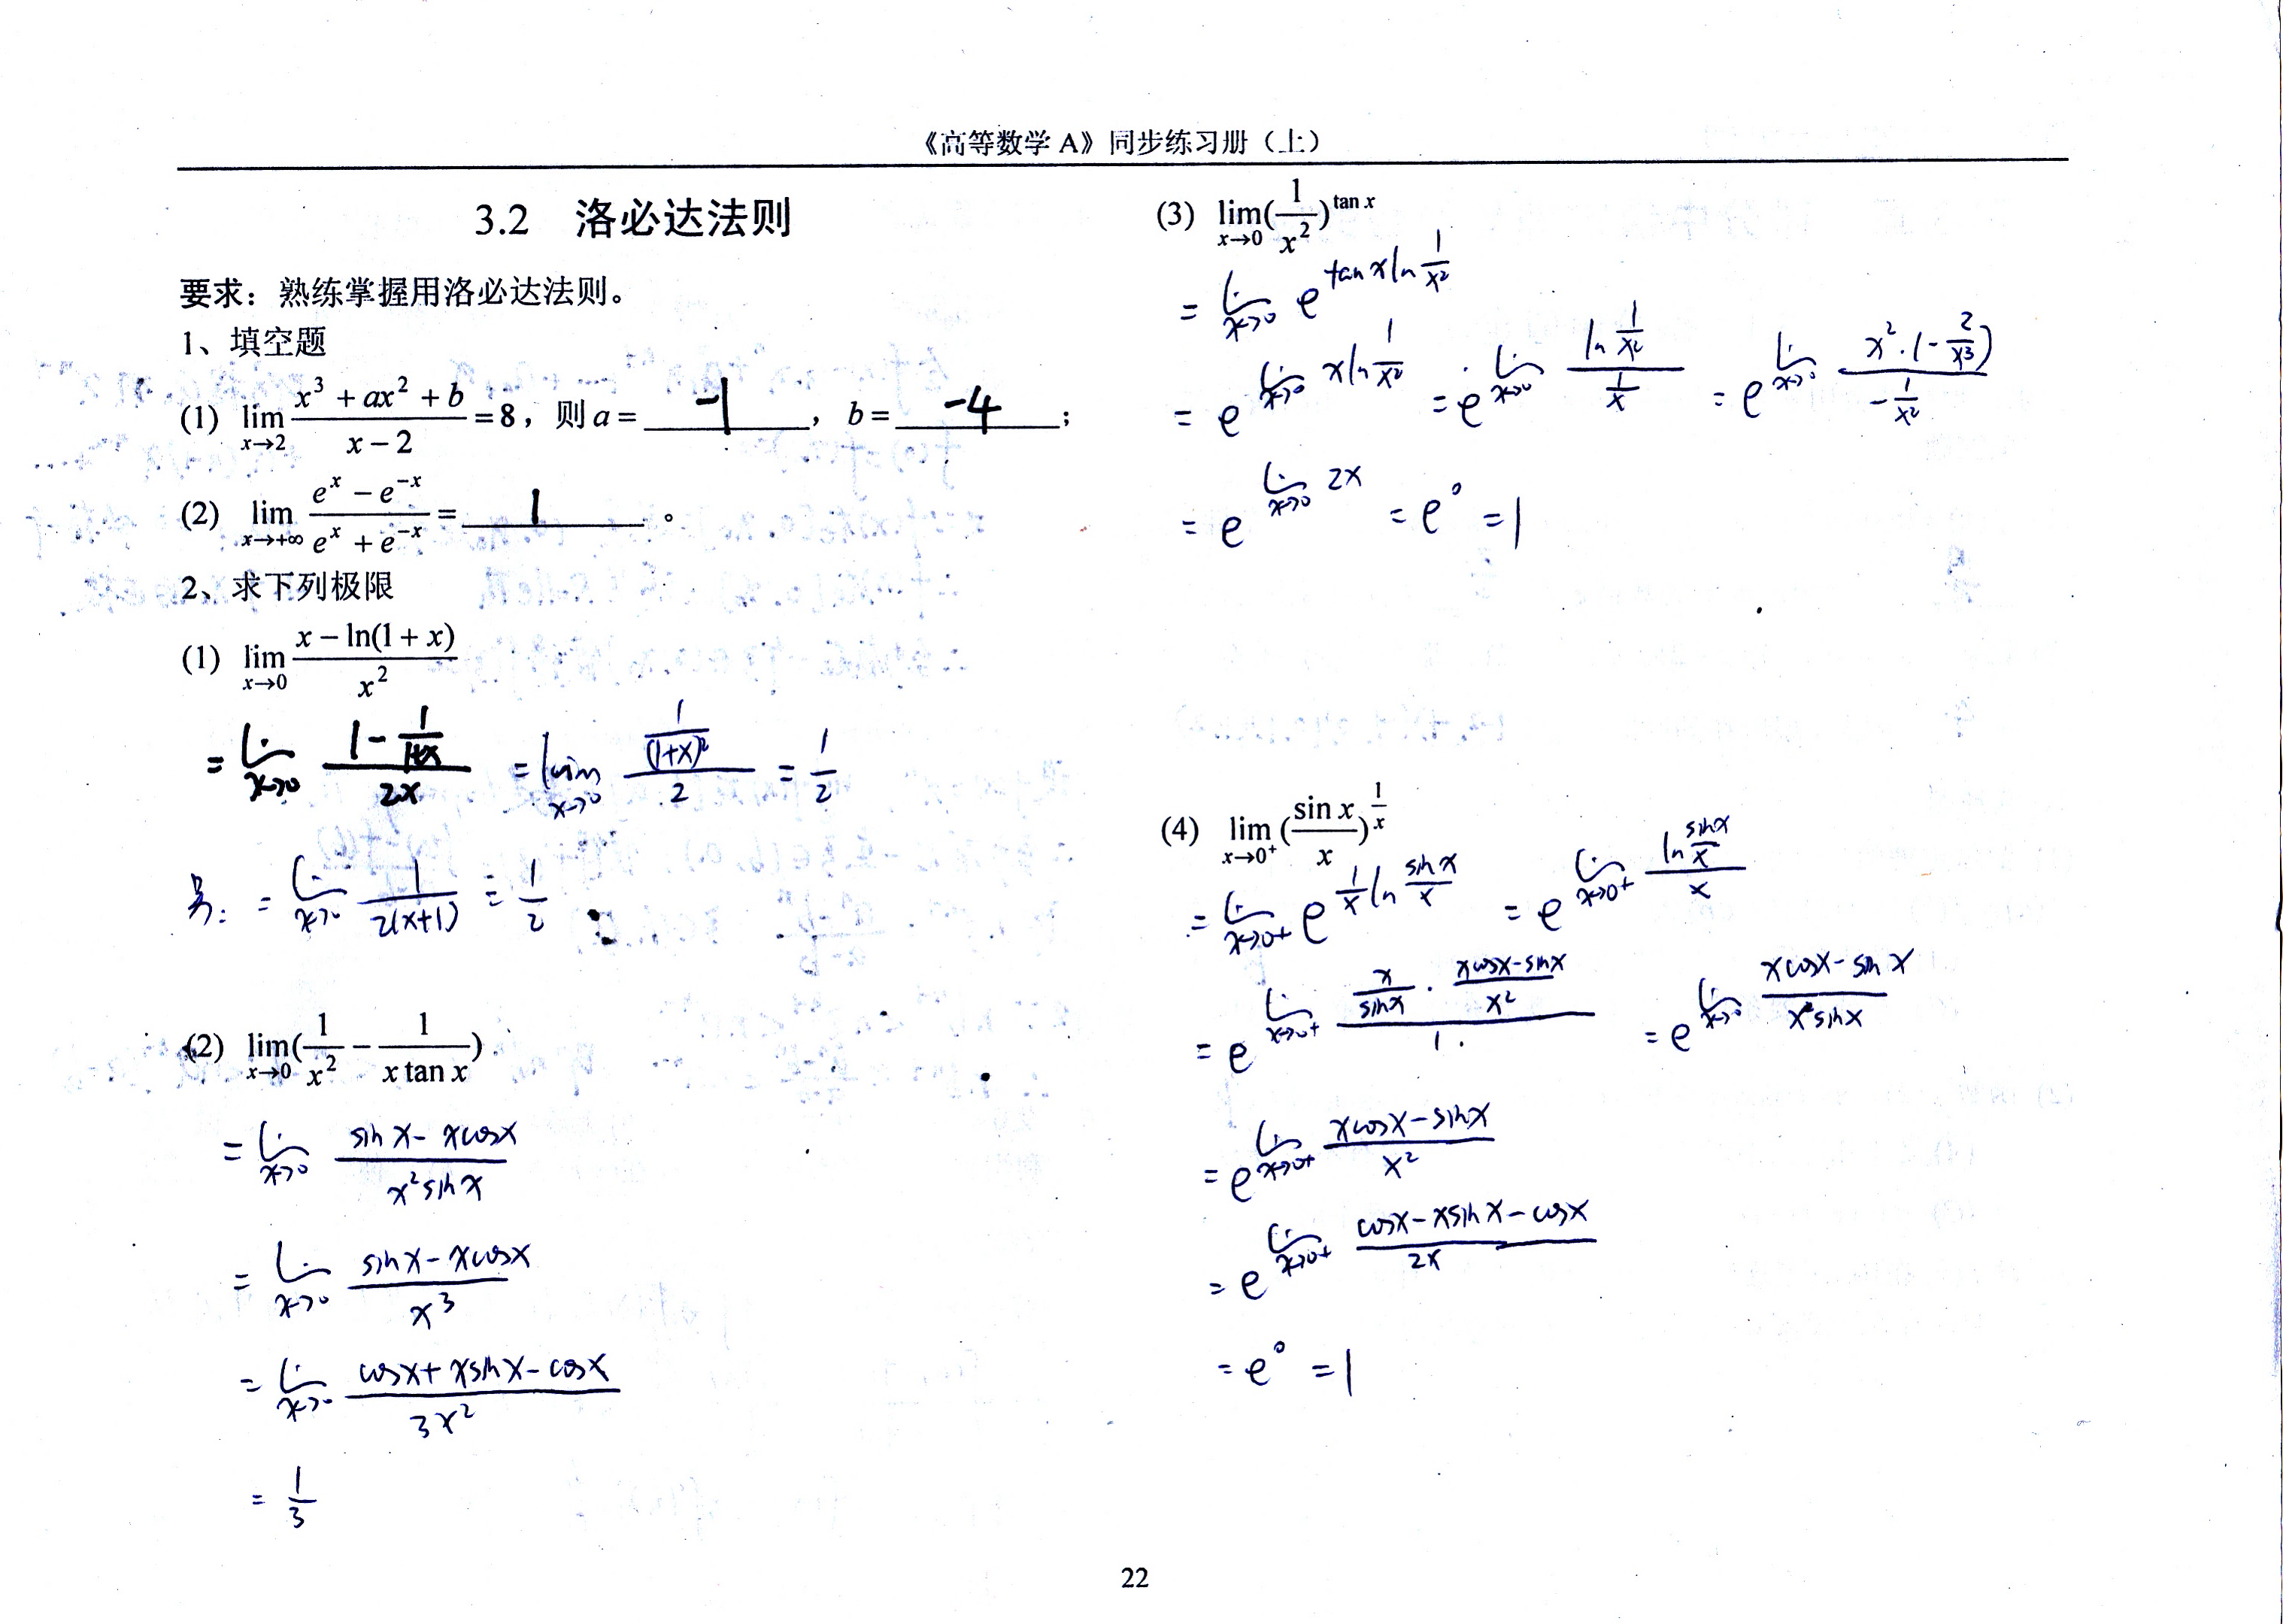 《高等数学 A》同步练习册（上）
3.2 洛必达法则
要求：熟练掌握用洛必达法则。
1、填空题
(1) lim_{x→2} (x³ + ax² + b)/(x − 2) = 8，则 a = -1， b = -4；
(2) lim_{x→+∞} (e^x − e^{−x})/(e^x + e^{−x}) = 1。
2、求下列极限
(1) lim_{x→0} (x − ln(1 + x))/x²
= lim_{x→0} (1 − 1/(1+x))/(2x) = lim_{x→0} (1/(1+x)²)/2 = 1/2
= lim_{x→0} 1/(2(x+1)) = 1/2
(2) lim_{x→0} (1/x² − 1/(x tan x))
= lim_{x→0} (sin x − x cos x)/(x² sin x)
= lim_{x→0} (sin x − x cos x)/x³
= lim_{x→0} (cos x + x sin x − cos x)/(3x²)
= 1/3
(3) lim_{x→0} (1/x²)^{tan x}
= lim_{x→0} e^{tan x ln (1/x²)}
= e^{lim_{x→0} x ln (1/x²)} = e^{lim_{x→0} (ln (1/x²))/(1/x)} = e^{lim_{x→0} (x²·(−2/x³))/(−1/x²)}
= e^{lim_{x→0} 2x} = e^0 = 1
(4) lim_{x→0⁺} (sin x/x)^{1/x}
= lim_{x→0+} e^{(1/x) ln (sin x/x)} = e^{lim_{x→0+} (ln (sin x/x))/x}
= e^{lim_{x→0+} ((x/sin x)·((x cos x − sin x)/x²))/1} = e^{lim_{x→0} (x cos x − sin x)/(x sin x)}
= e^{lim_{x→0+} (x cos x − sin x)/x²}
= e^{lim_{x→0+} (cos x − x sin x − cos x)/(2x)}
= e^0 = 1
22